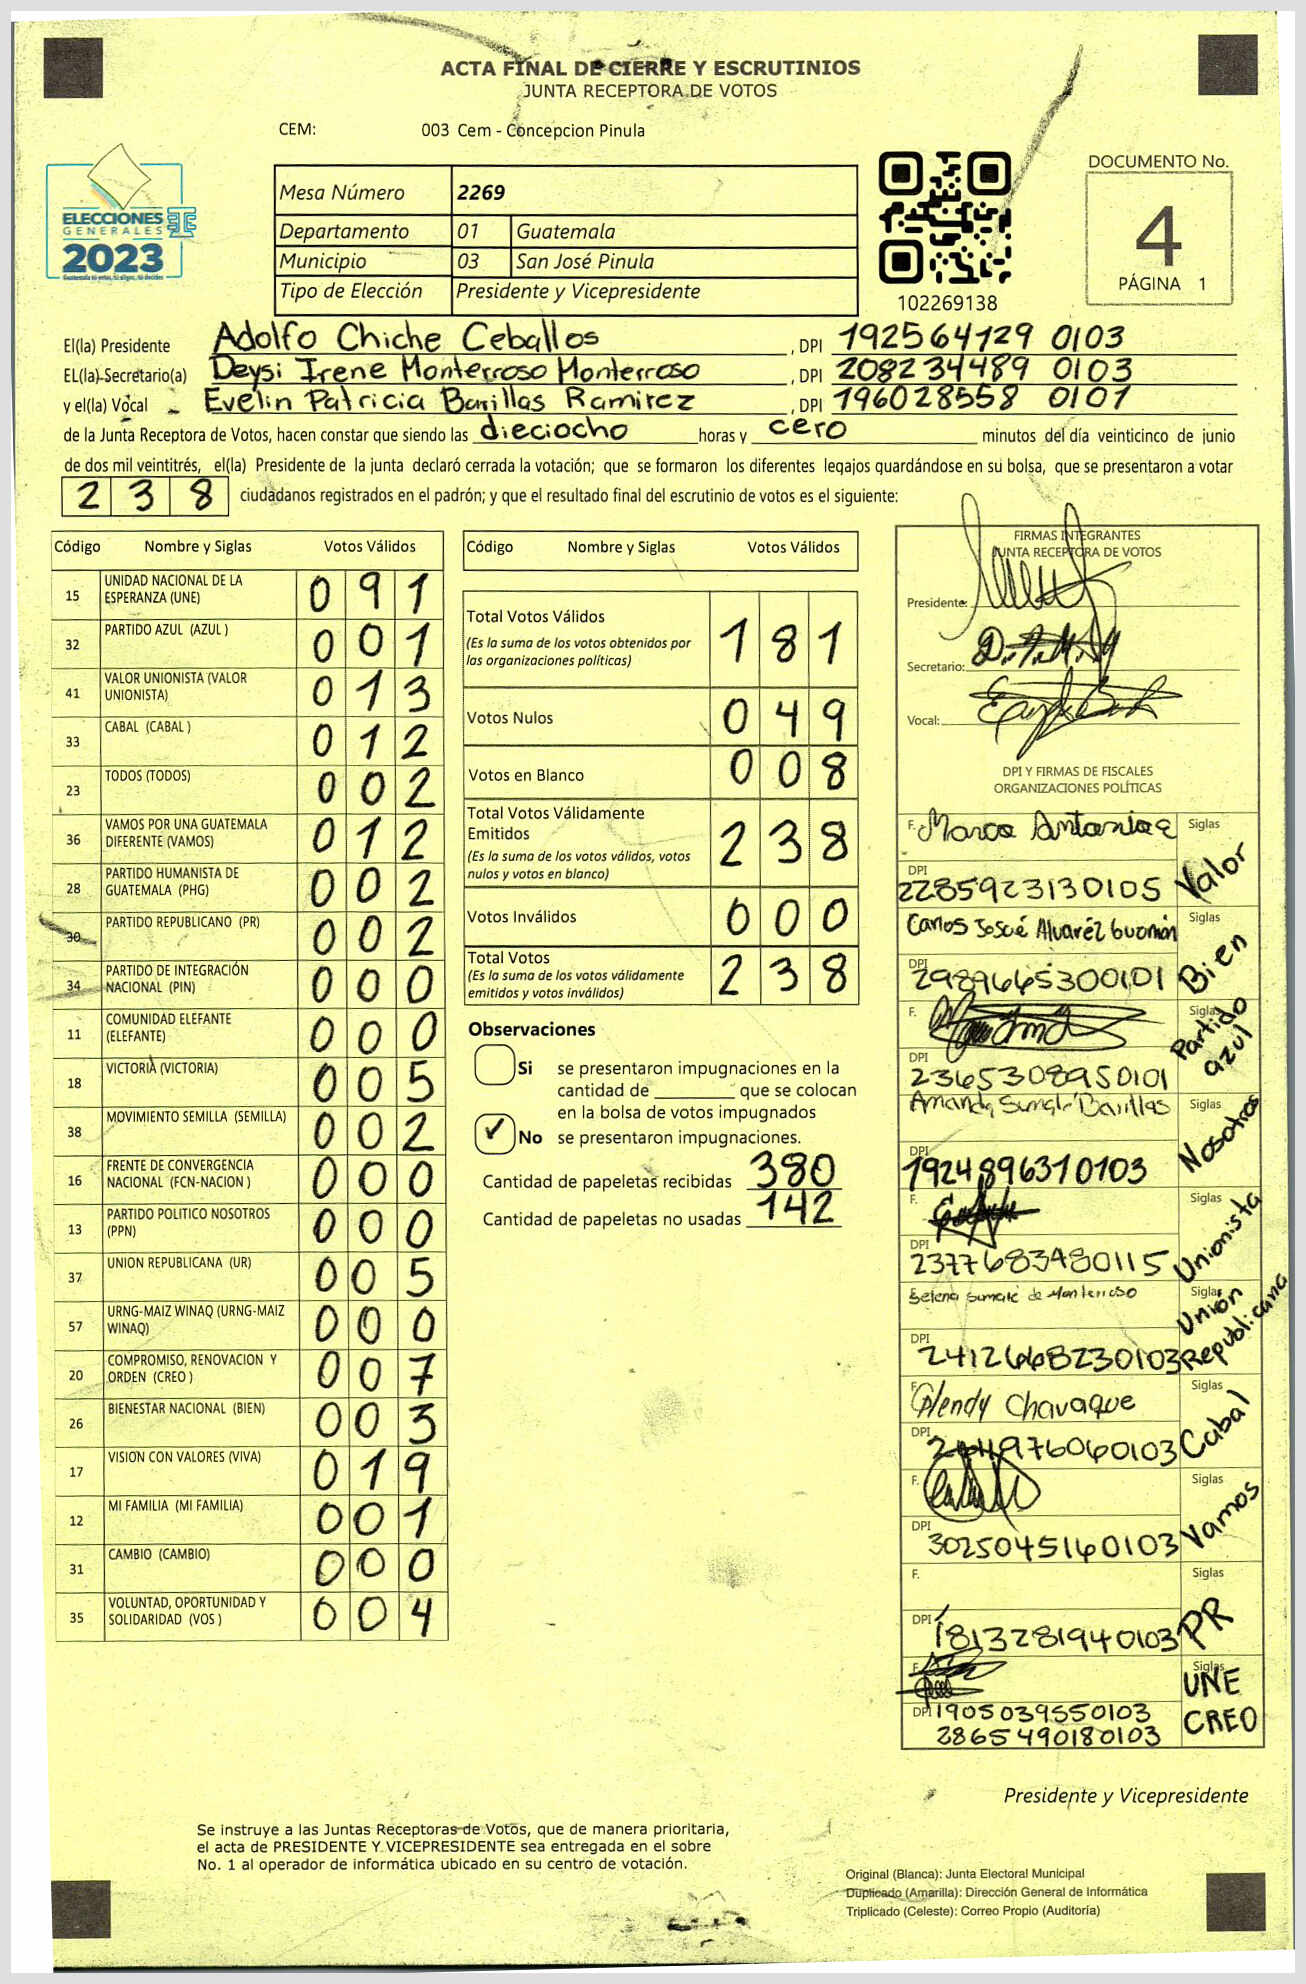 ACTA FINAL DE CIERRE Y ESCRUTINIOS
JUNTA RECEPTORA DE VOTOS
CEM: 003 Cem - Concepcion Pinula
ELECCIONES
GENERALES
2023
Mesa Número 2269
Departamento 01 Guatemala
Municipio 03 San José Pinula
Tipo de Elección Presidente y Vicepresidente
102269138
DOCUMENTO No.
4
PÁGINA 1
El(la) Presidente Adolfo Chiche Ceballos , DPI 192564129 0103
EL(la) Secretario(a) Deysi Irene Monterroso Monterroso , DPI 208234489 0103
y el(la) Vocal Evelin Patricia Barillas Ramirez , DPI 196028558 0101
de la Junta Receptora de Votos, hacen constar que siendo las dieciocho horas y cero minutos del día veinticinco de junio
de dos mil veintitrés, el(la) Presidente de la junta declaró cerrada la votación; que se formaron los diferentes legajos quardándose en su bolsa, que se presentaron a votar
238 ciudadanos registrados en el padrón; y que el resultado final del escrutinio de votos es el siguiente:
Código Nombre y Siglas Votos Válidos
15 UNIDAD NACIONAL DE LA ESPERANZA (UNE) 091
32 PARTIDO AZUL (AZUL ) 001
41 VALOR UNIONISTA (VALOR UNIONISTA) 013
33 CABAL (CABAL ) 012
23 TODOS (TODOS) 002
36 VAMOS POR UNA GUATEMALA DIFERENTE (VAMOS) 012
28 PARTIDO HUMANISTA DE GUATEMALA (PHG) 002
30 PARTIDO REPUBLICANO (PR) 002
34 PARTIDO DE INTEGRACIÓN NACIONAL (PIN) 000
11 COMUNIDAD ELEFANTE (ELEFANTE) 000
18 VICTORIA (VICTORIA) 005
38 MOVIMIENTO SEMILLA (SEMILLA) 002
16 FRENTE DE CONVERGENCIA NACIONAL (FCN-NACION ) 000
13 PARTIDO POLITICO NOSOTROS (PPN) 000
37 UNION REPUBLICANA (UR) 005
57 URNG-MAIZ WINAQ (URNG-MAIZ WINAQ) 000
20 COMPROMISO, RENOVACION Y ORDEN (CREO ) 007
26 BIENESTAR NACIONAL (BIEN) 003
17 VISION CON VALORES (VIVA) 019
12 MI FAMILIA (MI FAMILIA) 001
31 CAMBIO (CAMBIO) 000
35 VOLUNTAD, OPORTUNIDAD Y SOLIDARIDAD (VOS ) 004
Código Nombre y Siglas Votos Válidos
Total Votos Válidos 181
(Es la suma de los votos obtenidos por
las organizaciones políticas)
Votos Nulos 049
Votos en Blanco 008
Total Votos Válidamente
Emitidos 238
(Es la suma de los votos válidos, votos
nulos y votos en blanco)
Votos Inválidos 000
Total Votos 238
(Es la suma de los votos válidamente
emitidos y votos inválidos)
Observaciones
Si se presentaron impugnaciones en la
cantidad de ________ que se colocan
en la bolsa de votos impugnados
✓ No se presentaron impugnaciones.
Cantidad de papeletas recibidas 380
Cantidad de papeletas no usadas 142
FIRMAS INTEGRANTES
JUNTA RECEPTORA DE VOTOS
Presidente:
Secretario:
Vocal:
DPI Y FIRMAS DE FISCALES
ORGANIZACIONES POLÍTICAS
F. Marco Siglas
DPI 2285923130105 Valor
Carlos Josué Alvaréz Guzmán Siglas
DPI 2989665300101 Bien
F. Siglas Partido azul
DPI 2365308950101
Amanda Barillas Siglas
DPI 1924896310103 Nosotros
F. Siglas
DPI 2377683480115 Unionista
de Monterroso Siglas Unión
DPI 2412668230103 Republicana
F. Glendy Chavaque Siglas
DPI 2449976060103 Cabal
F. Siglas
DPI 3025045160103 Vamos
F. Siglas
DPI 1813281940103 PR
F. Siglas UNE
DPI 1905039550103 CREO
2865490180103
Presidente y Vicepresidente
Se instruye a las Juntas Receptoras de Votos, que de manera prioritaria,
el acta de PRESIDENTE Y VICEPRESIDENTE sea entregada en el sobre
No. 1 al operador de informática ubicado en su centro de votación.
Original (Blanca): Junta Electoral Municipal
Duplicado (Amarilla): Dirección General de Informática
Triplicado (Celeste): Correo Propio (Auditoría)